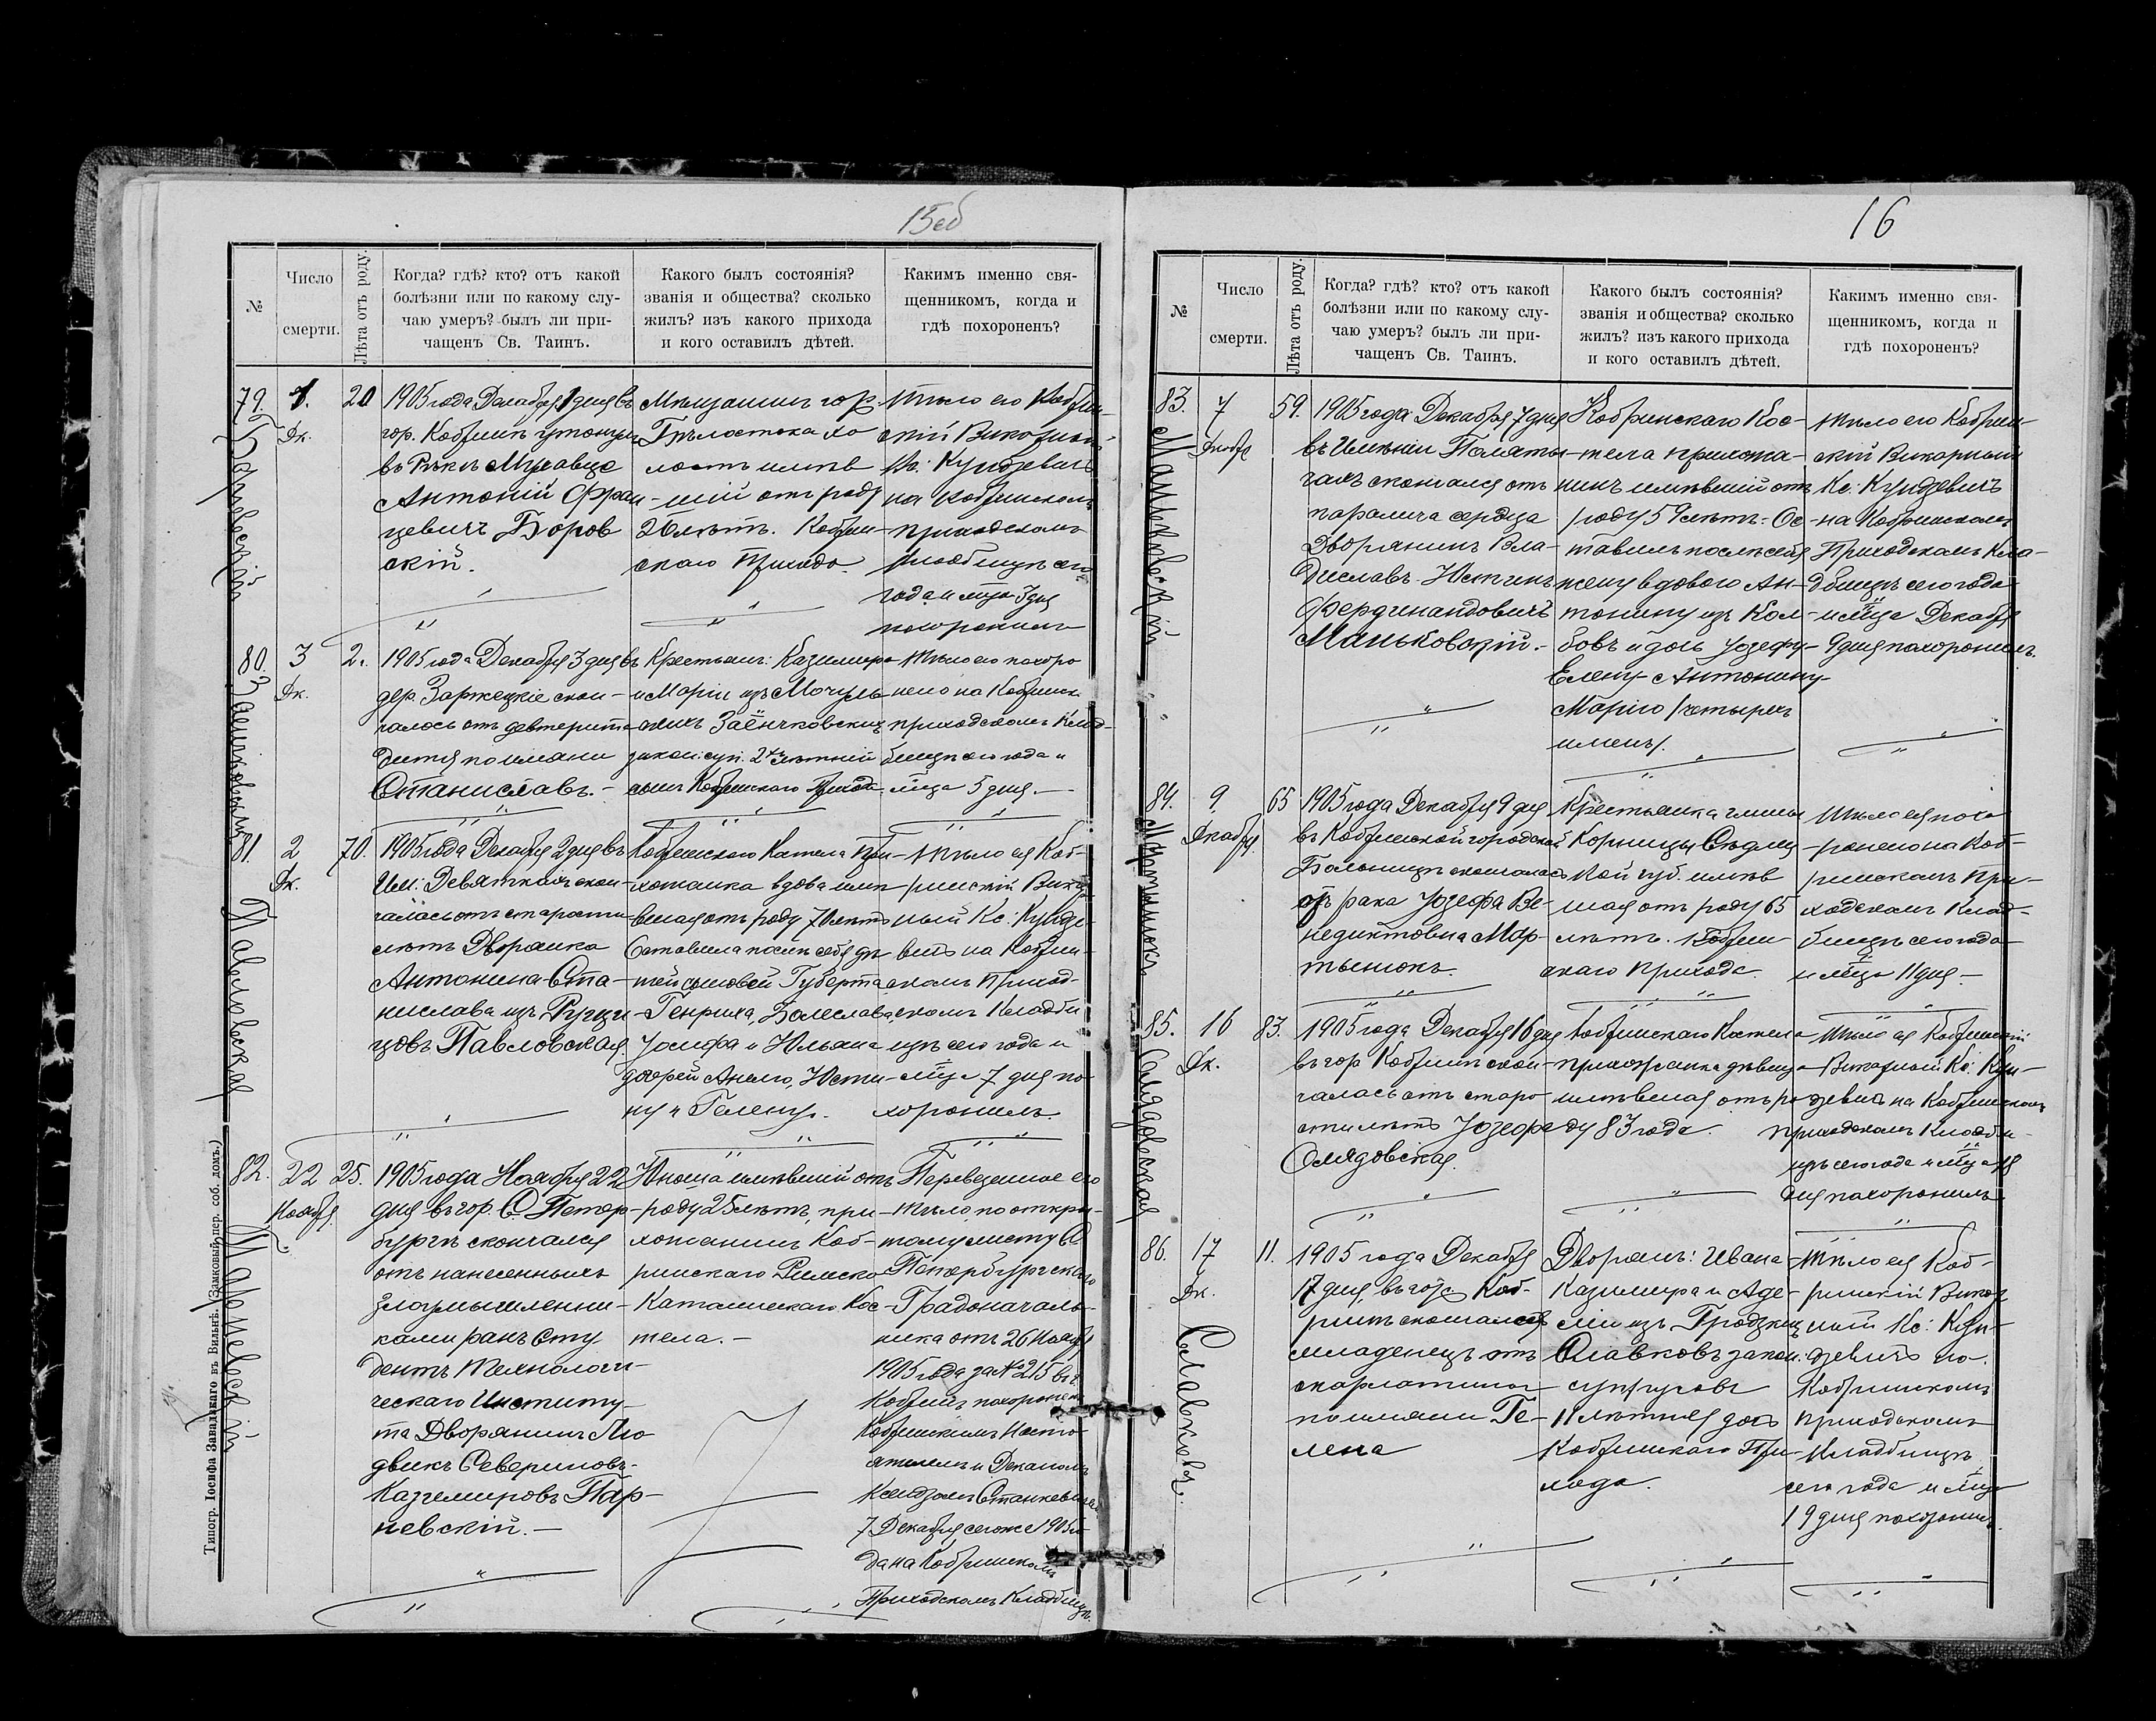 15об
№
Число
смерти.
Лѣта отъ роду.
Когда? гдѣ? кто? отъ какой
болѣзни или по какому слу-
чаю умеръ? былъ ли при-
чащенъ Св. Таинъ.
Какого былъ состоянія?
званія и общества? сколько
жилъ? изъ какого прихода
и кого оставилъ дѣтей.
Какимъ именно свя-
щенникомъ, когда и
гдѣ похороненъ?
79.
Боровскій
1.
Дк.
20
1905 года Декабря 1 дня въ
гор. Кобринѣ утонулъ
въ Рѣкѣ Мухавце
Антоній Фран-
цевичъ Боров
скій.
Мѣщанинъ гор.
Бѣлостока хо
лостъ имѣв
-шій отъ роду
20 лѣтъ. Кобрин-
скаго Прихода.
Тѣло его Кобрин-
скій Викарный
Кс: Кундзевичъ
на Кобринскомъ
приходскомъ
кладбищѣ сего
года и мца 3 дня
похоронилъ
80.
3
Дк.
2.
1905 года Декабря 3 дня въ
дер. Заржецкіе скон-
чалось отъ дефтерита
дитя по имени
Станиславъ.-
Крестьянъ: Казимира
и Маріи изъ
Заёнчковскихъ
закон: суп. 2х лѣтній
сынъ Кобринскаго Прихода
Тѣло его похоро
нено на Кобринск
приходскомъ Клад-
бищѣ сего года и
мца 5 дня.-
81.
Павловская
2
Дк.
70.
1905 года Декабря 2 дня въ
Им: Девяткахъ скон-
чалась отъ старости
лѣтъ Дворянка
Антонина-Ста-
нислава изъ
Павловская.
Кобринскаго Костела При-
хожанка вдова имѣ
вшая отъ роду 70 лѣтъ
Оставила послѣ себя дѣ
тей сыновей Губерта
-Генриха, Болеслава,
Іосифа и Юльяна
дочерей Анелю, Юсти-
ну и Гелену.
Тѣло ея Коб-
ринскій Викар
ный Кс: Кундзе-
вичъ на Кобрин-
скомъ Приход-
скомъ Кладби
щѣ сего года и
мца 7 дня по-
хоронилъ
82.
22
Ноября
25.
1905 года Ноября 22
дня въ гор. С. Петер-
бургѣ скончался
отъ нанесенныхъ
злоумышленни-
ками ранъ Сту
дентъ Технологи-
ческаго Институ-
та Дворянинъ Лю
двикъ Севериновъ-
Казимировъ Тар-
невскій.-
Тарневскій
Юноша имѣвшій отъ
роду 25 лѣтъ, при-
хожанинъ Коб-
ринскаго Римско
Католическаго Кос-
тела.-
Перевезенное его
тѣло, по откры-
тому листу С
Петербургскаго
Градоначаль-
ника отъ 26 Ноября
1905 года за № 215 въ г.
Кобринъ похоронено
Кобринскимъ Насто-
ятелемъ и Деканомъ
Ксендзомъ Станкевичемъ
7 Декабря сего же 1905 го
да на Кобринскомъ
Приходскомъ Кладбищѣ.
Типогр. Іосифа Завадзкаго въ Вильнѣ. (Замковый пер. соб. домъ.)
16
№
Число
смерти.
Лѣта отъ роду.
Когда? гдѣ? кто? отъ какой
болѣзни или по какому слу-
чаю умеръ? былъ ли при-
чащенъ Св. Таинъ.
Какого былъ состоянія?
званія и общества? сколько
жилъ? изъ какого прихода
и кого оставилъ дѣтей.
Какимъ именно свя-
щенникомъ, когда и
гдѣ похороненъ?
83.
Маньковскій
7
59.
1905 года Декабря 7 дня
въ Имѣніи Поляты-
чахъ скончался отъ
паралича сердца
Дворянинъ Вла-
диславъ-Юстинъ
Фердинандовичъ
Маньковскій.-
Кобринскаго Кос-
тела прихожа-
нинъ имѣвшій отъ
роду 59 лѣтъ. Ос-
тавилъ послѣ себя
жену вдового Ан-
тонину изъ Кол-
бовъ и дочь Іозефу-
Елену-Антонину-
Марію /четырехъ
именъ/.
Тѣло его Кобрин-
скій Викарный
Кс: Кундзевичъ
на Кобринскомъ
Приходскомъ Кла-
дбищѣ сего года
и мца Декабря
9 дня похоронилъ.
84.
Мартынюкъ
9.
Декабря
65
1905 года Декабря 9 дня
въ Кобринской городской
Больницѣ скончалась
отъ рака Іозефа Ве-
недиктовна Мар-
тынюкъ.
Крестьянка гмины
Корницы Сѣдлец
кой губ. имѣв
шая отъ роду 65
лѣтъ. Кобрин
скаго Прихода.
Тѣло ея похо
-ронено на Коб-
ринскомъ При-
ходскомъ Клад-
бищѣ сего года
и мца 11 дня.-
85.
16
Дк.
83.
1905 года Декабря 16 дня
въ гор Кобринѣ скон-
чалась отъ старо
сти лѣтъ Іозефа
Кобринскаго Костела
прихожанка дѣвица
имѣвшая отъ ро
ду 83 года.
Тѣло ея Кобринскій
Викарный Кс: Кун-
дзевичъ на Кобринскомъ
приходскомъ Кладби-
щѣ сего года и мца 18
дня похоронилъ
86.
Славковъ.
17
Дк.
11.
1905 года Декабря
17 дня, въ гор Коб-
ринѣ скончалась
младенецъ отъ
скарлатины
по имени Ге-
лена
Дворянъ: Ивана-
Казимира и Аде-
ліи изъ Гродзкихъ
Славковъ закон.
супруговъ
11 лѣтняя дочь
Кобринскаго При-
хода.
Тѣло ея Коб-
ринскій Викар
ный Кс: Кун-
дзевичъ на
Кобринскомъ
приходскомъ
Кладбищѣ
сего года и мца
19 дня похоронилъ.